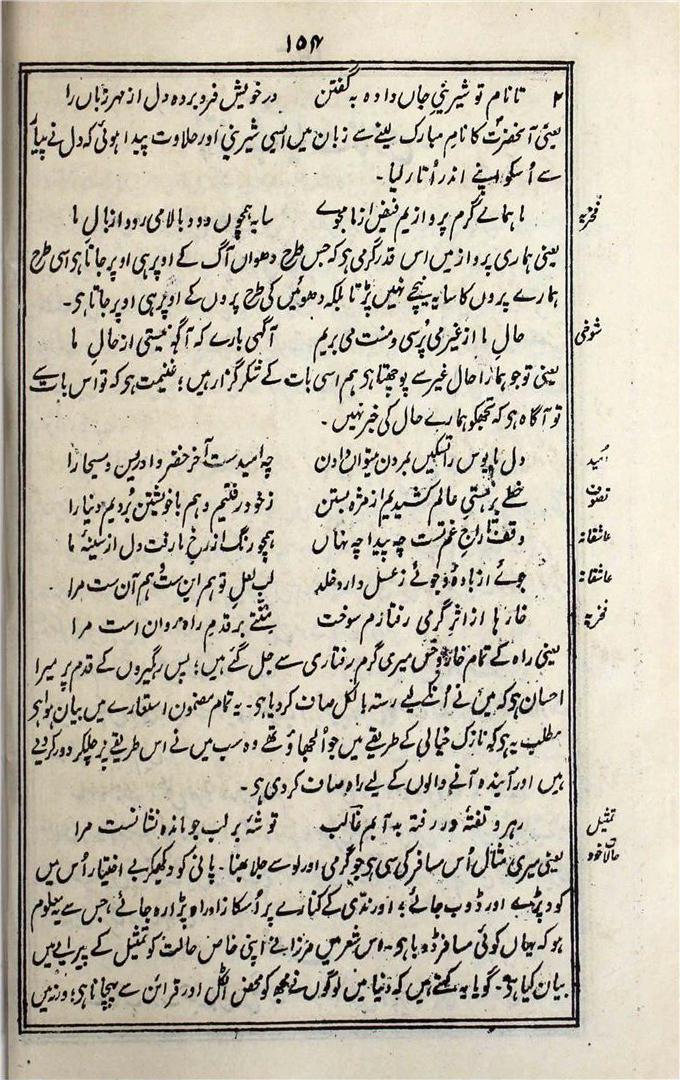 ۱۵۴
۲ تا نامِ تو شیرینیِ جاں دادہ بہ گفتن درخویش فرو بردہ دل از مہر زباں را
یعنی آنحضرتؐ کا نامِ مبارک لینے سے زبان میں ایسی شیرینی اور حلاوت پیدا ہوئی کہ دل نے پیار
سے اُسکو اپنے اندر اُتار لیا۔
فخریہ ما ہمائے گرم پروازیم فیض از ما مجوے سایہ ہمچوں دود بالا می رود از بالِ ما
یعنی ہماری پرواز میں اس قدر گرمی ہو کہ جس طرح دھواں آگ کے اوپر ہی اوپر جاتا ہو اسی طرح
ہمارے پروں کا سایہ نیچے نہیں پڑتا بلکہ دھوئیں کی طرح پروں کے اوپر ہی اوپر جاتا ہو۔
شوخی حالِ ما از غیر می پُرسی و منت می بریم آگہی بارے کہ آگہ نیستی از حالِ ما
یعنی تو جو ہمارا حال غیر سے پوچھتا ہو ہم اسی بات کے شکر گزار ہیں؛ غنیمت ہو کہ تو اس بات سے
تو آگاہ ہو کہ تجھکو ہمارے حال کی خبر نہیں۔
اُمید دل مایوس را تسکیں بمردن میتواں دادن چہ امیدست آخر خضر و ادریس و مسیحا را
تصوف خطے بر ہستیِ عالم کشیدیم از مژہ بستن زخود رفتیم و ہم با خویشتن بُردیم دنیا را
عاشقانہ وقفِ تاراجِ غمِ تست چہ پیدا چہ نہاں ہمچو رنگ از رخِ ما رفت دل از سینۂ ما
عاشقانہ جوئے از بادہ و جوئے زعسل دارد خلد لبِ لعلِ تو ہم این ست و ہم آن ست مرا
فخریہ خارہا از اثرِ گرمیِ رفتارم سوخت منّتے بر قدمِ راہ روان است مرا
یعنی راہ کے تمام خار و خس میری گرم رفتاری سے جل گئے ہیں؛ پس رہگیروں کے قدم پر میرا
احسان ہو کہ میں نے اُنکے لیے رستہ بالکل صاف کر دیا ہو۔ یہ تمام مضمون استعارے میں بیان ہوا ہو
مطلب یہ ہو کہ نازک خیالی کے طریقے میں جو اُلجھاؤ تھے وہ سب میں نے اس طریقے پر چلکر دور کر دیے
ہیں اور آیندہ آنے والوں کے لیے راہ صاف کر دی ہو۔
تمثیل حالاتِ خود رہرو تفتۂ در رفتہ بہ آبم غالب توشۂ بر لبِ جو ماندہ نشانست مرا
یعنی میری مثال اُس مسافر کی سی ہو جو گرمی اور لو سے جلا بھنا۔ پانی کو دیکھکر بے اختیار اُس میں
کود پڑے اور ڈوب جائے؛ اور ندّی کے کنارے پر اُسکا زادِ راہ پڑا رہ جائے؛ جس سے معلوم
ہو کہ یہاں کوئی مسافر ڈوبا ہو۔ اس شعر میں مرزا نے اپنی خاص حالت کو تمثیل کے پیرایے میں
بیان کیا ہو۔ گویا یہ کہتے ہیں کہ دنیا میں لوگوں نے مجھ کو محض اٹکل اور قرائن سے پہچانا ہو؛ ورنہ میں